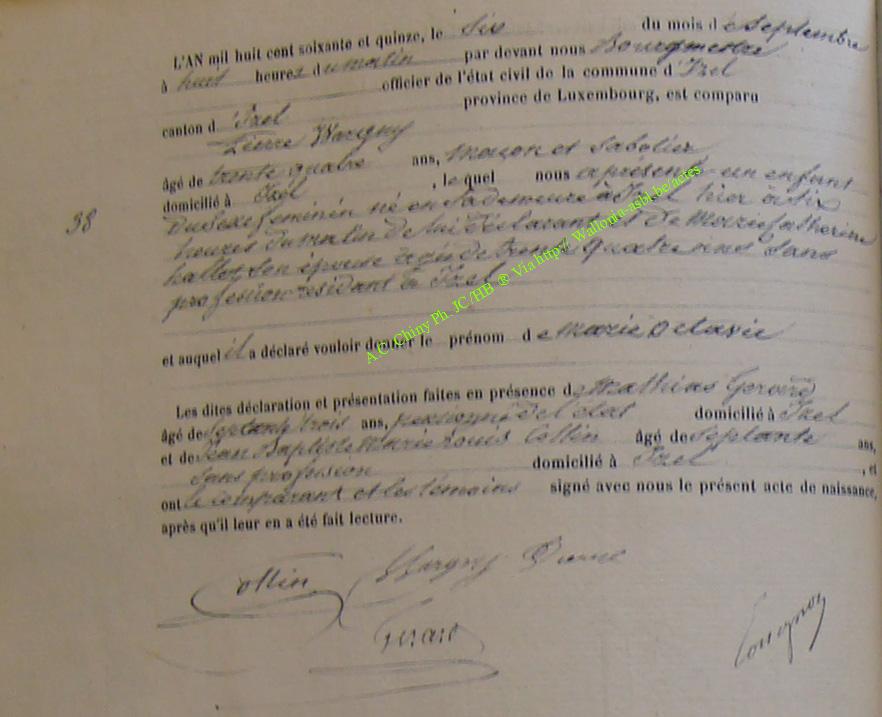 L'AN mil huit cent soixante et quinze, le Six du mois de Septembre
à huit heures du matin par devant nous Bourgmestre
officier de l'état civil de la commune d'Izel
canton d'Izel province de Luxembourg, est comparu
Pierre Wargny
âgé de trente quatre ans, Maçon et Sabotier
domicilié à Izel, lequel nous a présenté un enfant
38
du sexe feminin né en sa demeure à Izel hier à six
heures du matin de lui déclarant et de Marie Catherine
hallez son épouse agée de trente quatre ans Sans
profession residant à Izel
et auquel il a déclaré vouloir donner le prénom de Marie Octavie
Les dites déclaration et présentation faites en présence de Mathias Gerard
âgé de Septante trois ans, pensionné de l'état domicilié à Izel
et de Jean Baptiste Marie Louis Collin âgé de Septante ans,
Sans profession domicilié à Izel, et
ont le comparant et les témoins signé avec nous le présent acte de naissance,
après qu'il leur en a été fait lecture.
Collin Wargny Pierre
Gerard
A.C. Chiny Ph. JC/HB ® Via http:// Wallonia-asbl-be/actes